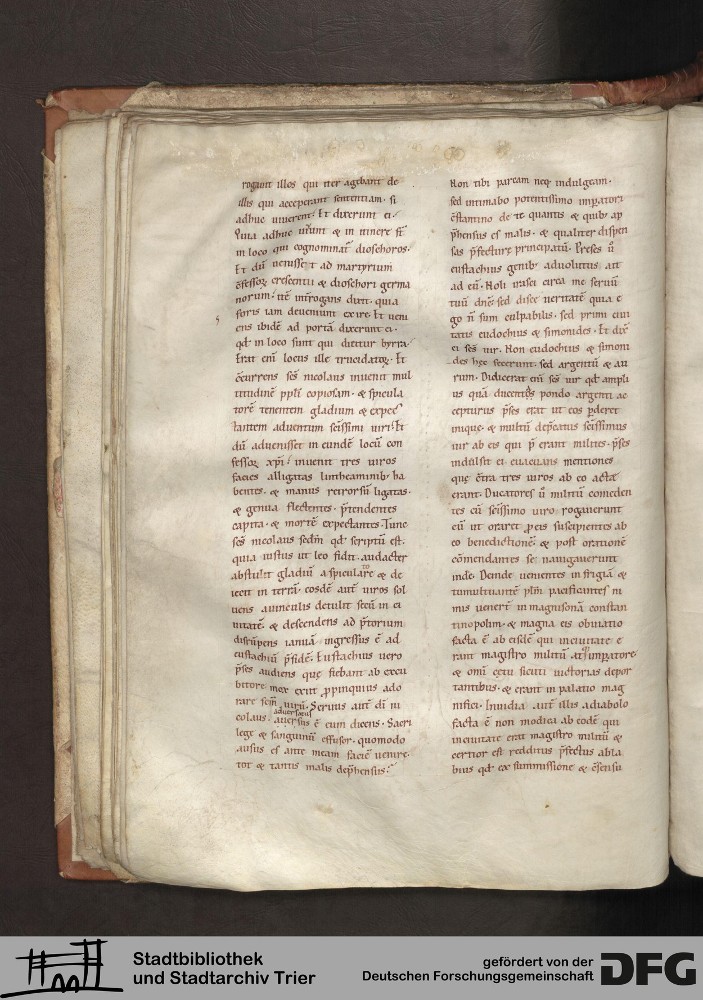 rogauit illos qui iter agebant de
illis qui acceperant sententiam. si
adhuc uiuerent. Et dixerunt ei.
Quia adhuc uiuunt & in itinere st̄
in loco qui cognominat᷑ dioschoros.
Et dū uenisset ad martyrium
c̄fessoꝝ crescentii & dioschori germa
norum. itē int̄rogans dixit. quia
foris iam deueniunt exire. Et ueni
ens ibidē ad portā dixerunt ei.
qd̄ in loco sunt qui dicitur byrra.
Erat eni locus ille trucidatoꝝ. Et
c̄currens sc̄s nicolaus inuenit mul
titudinē ppl̄i copiosam. & spicula
torē tenentem gladium & expec
tantem aduentum sc̄issimi uiri. Et
dū aduenisset in eundē locū con
fessor xp̄i. inuenit tres uiros
facies alligatas lintheaminib; ha
bentes. & manus retrorsū ligatas.
& genua flectentes. p̄tendentes
capita. & mortē expectantes. Tunc
sc̄s nicolaus sedm̄ qd̄ scriptū est.
quia iustus ut leo fidit. audacter
abstulit gladiū a spiculatore & de
iecit in terrā. eosdē aut̄ uiros sol
uens a uinculis detulit secū in ci
uitatē. & descendens ad p̄torium
disrūpens ianuā. ingressus ē ad
eustachiū p̄sidē. Eustachius uero
p̄ses audiens quę fiebant ab excu
bitore mox exiit ꝓpinquius ado
rare sc̄m uirū. Seruus aut̄ dī ni
aduersatus
colaus. auersus ē eum dicens. Sacri
lege & sanguinū effusor. quomodo
ausus es ante meam faciē uenire.
tot & tantis malis dep̄hensus.
Non tibi parcam neq; indulgeam.
sed intimabo potentissimo imꝑatori
c̄stantino de te quantis & quib; ap
p̄hensus es malis. & qualiter dispen
sas p̄fecturę principatū. Preses ū
eustachius genib; aduolutus. ait
ad eū. Noli irasci circa me seruū
tuū dn̄e. sed disce ueritatē quia e
go n̄ sum culpabilis. sed primi ciui
tatis eudochius & simonides. Et dix̄
ei sc̄s uir. Non eudochius & simoni
des hęc fecerunt. sed argentū & au
rum. Didicerat eni sc̄s uir qd̄ ampli
us quā ducentos pondo argenti ac
cepturus p̄ses erat ut eos ꝑderet
inique. & multū dep̄catus sc̄issimus
uir ab eis qui p̄erant milites. p̄ses
indulsit ei euacuans mentiones
quę c̄tra tres uiros ab eo actę
erant. Ducatores ū militū comeden
tes cū sc̄issimo uiro rogauerunt
eū ut oraret ꝓ eis suscipientes ab
eo benedictionē. & post orationē
cōmendantes se. nauigauerunt
inde. Deinde uenientes in frigiā &
tumultuantē plm̄ pacificantes ni
mis uenerē in magnisonā constan
tinopolim. & magna eis obuiatio
facta ē ab eisdē qui in ciuitate e
rant magistro militū atq; imꝑatore
& omi cętu sicuti uictorias depor
tantibus. & erant in palatio mag
nifici. Inuidia aut̄ illis a diabolo
facta ē non modica ab eodē qui
in ciuitate erat magistro militū &
certior est redditus p̄fectus abla
bius qd̄ ex summissione & c̄sensu
Stadtbibliothek
und Stadtarchiv Trier
gefördert von der
Deutschen Forschungsgemeinschaft
DFG